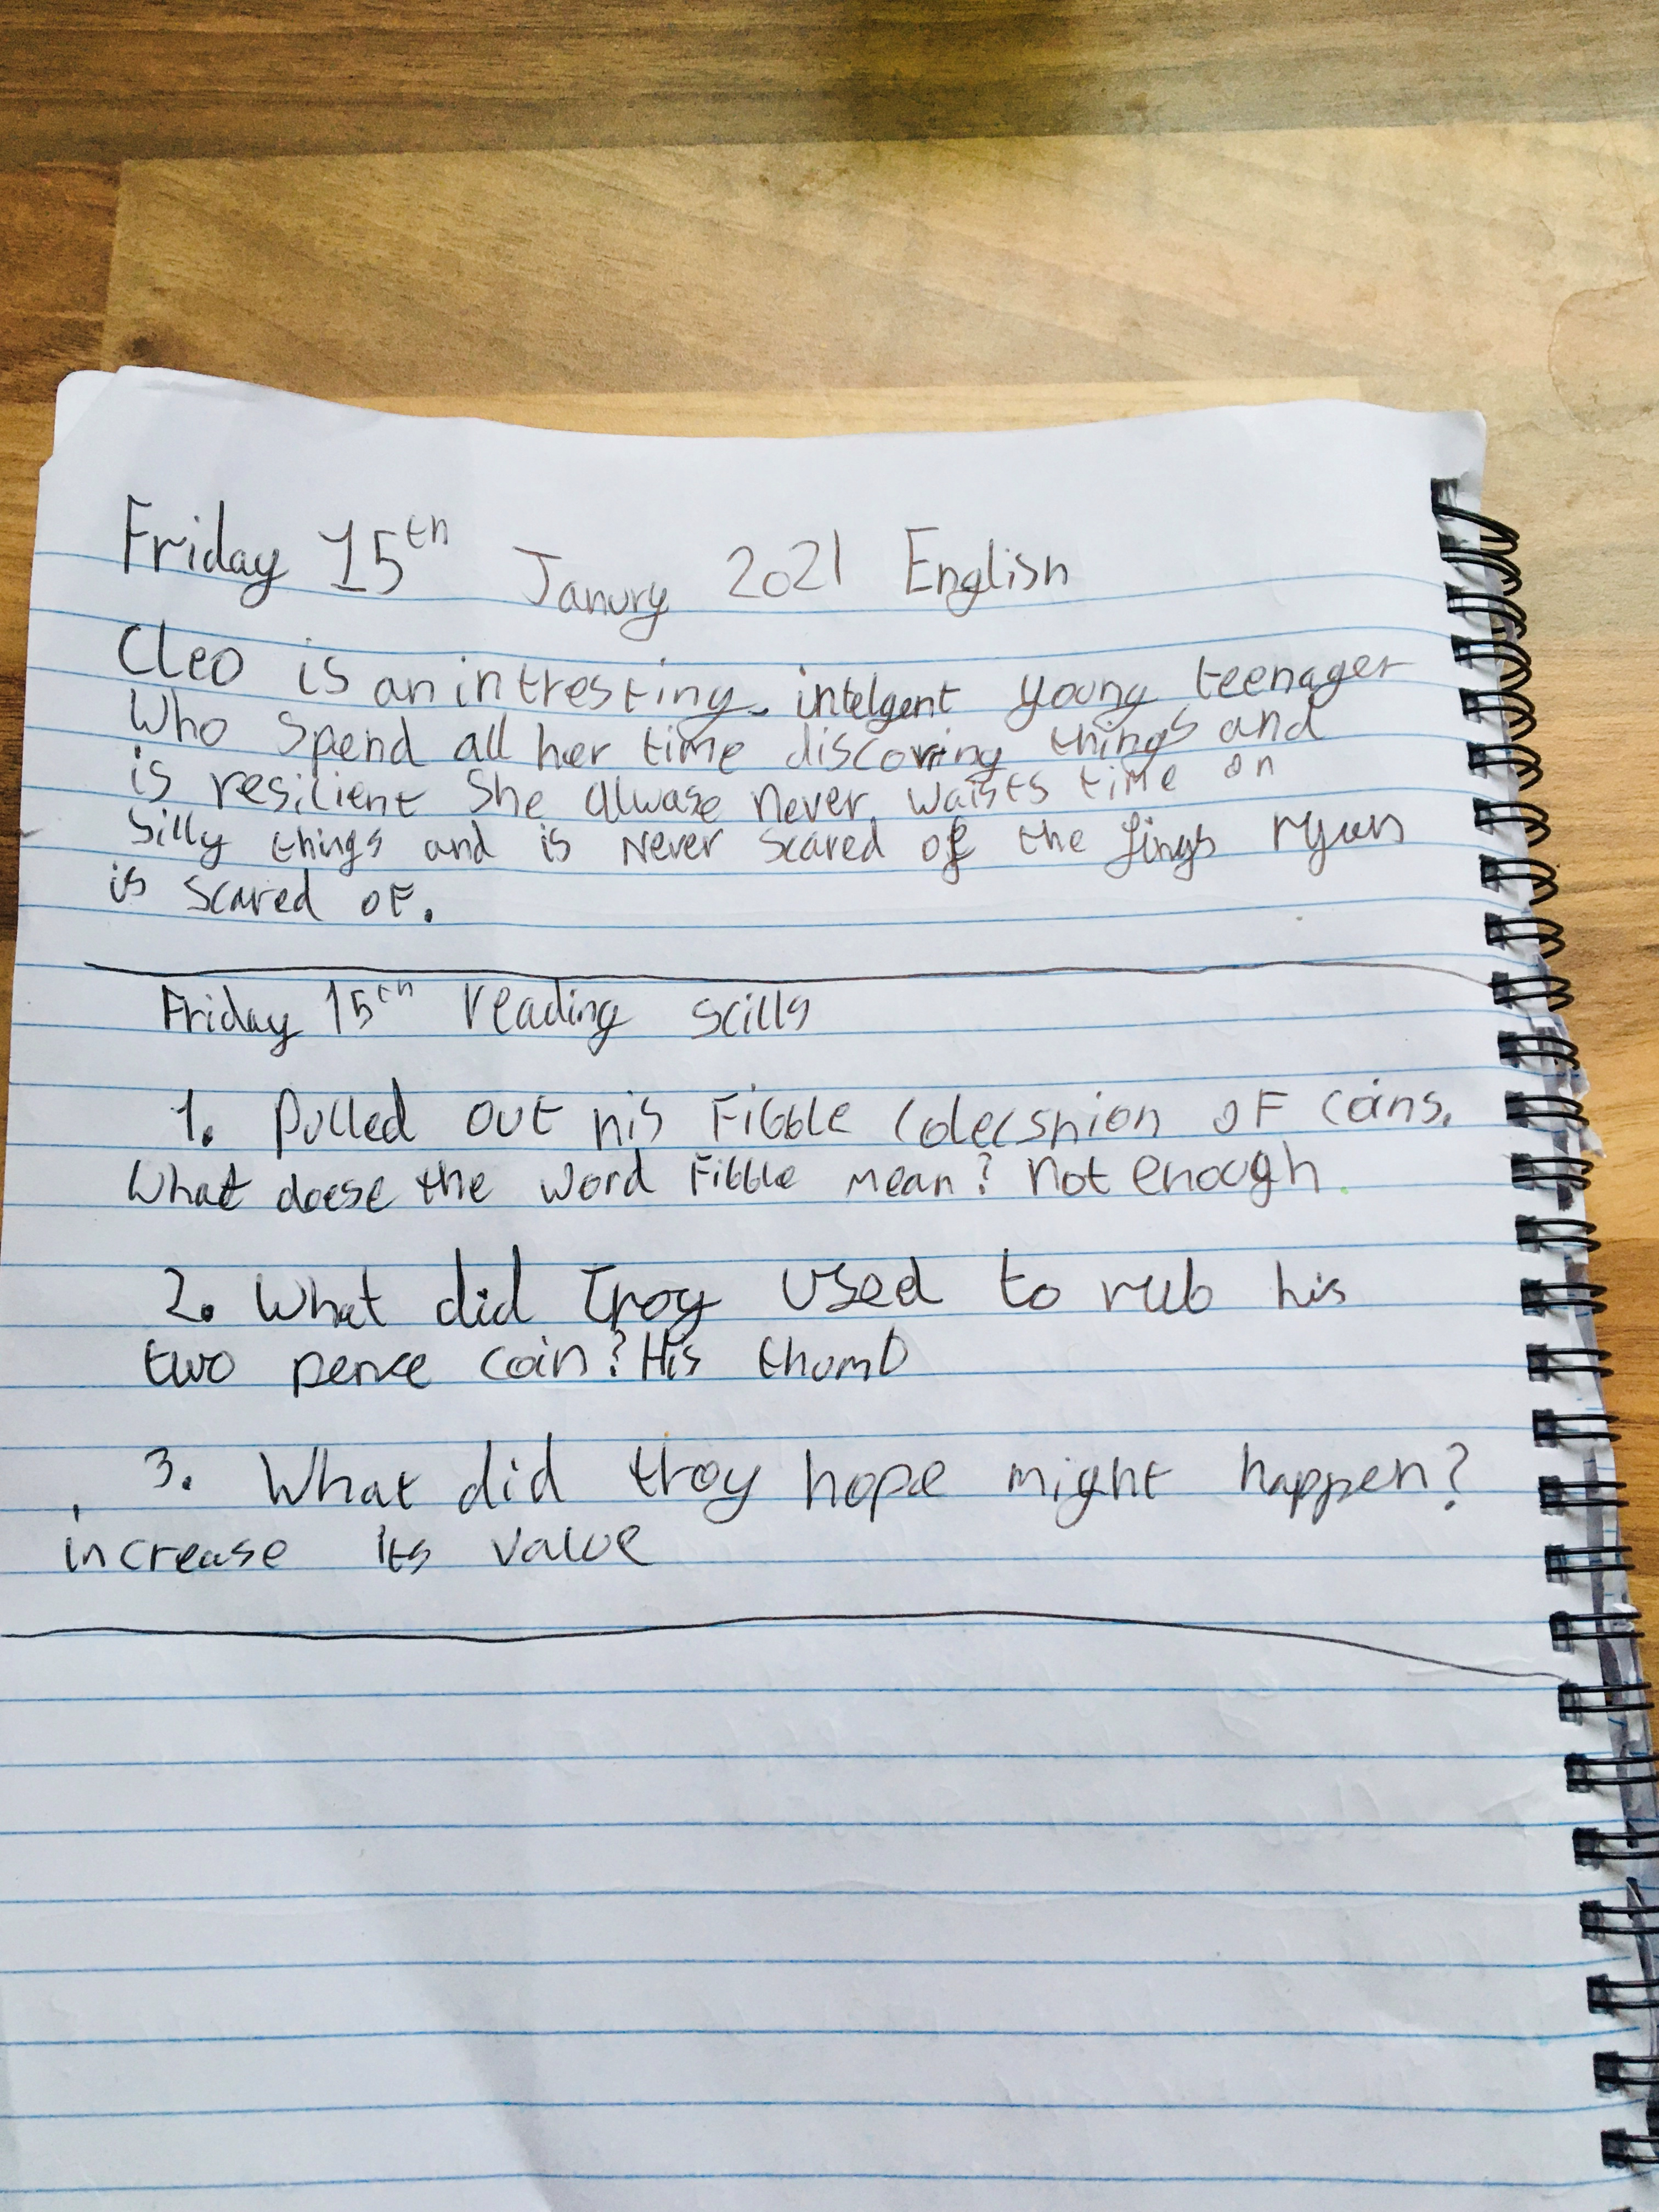 Friday 15th Janury 2021 English
Cleo is an intresting, intelgent young teenager
Who spend all her time discovring things and
is resilient She alwase never waists time on
silly things and is never scared of the fings ryan
is scared of.
Friday 15th reading scills
1. Pulled out his Fibble colecshion of coins.
What doese the word Fibble mean? not enough.
2. What did Troy used to rub his
two pence coin? His thumb
3. What did troy hope might happen?
increase its value